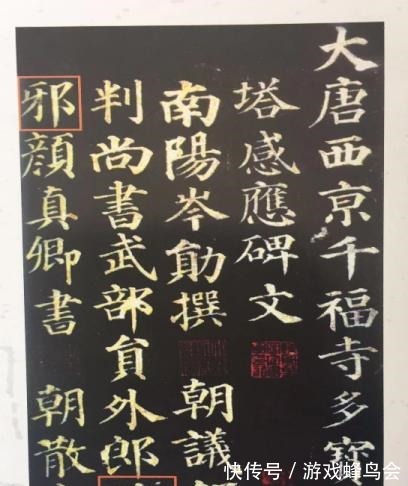 大唐西京千福寺多寶
塔感應碑文
南陽岑勛撰 朝議
判尚書武部員外郎
邪顏真卿書 朝散
快传号／游戏蜂鸟会